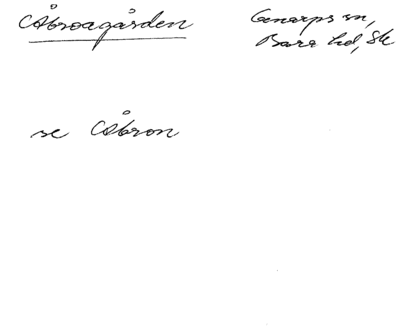 Åbroagården
Genarps sn,
Bara hd, Sk
se Åbron